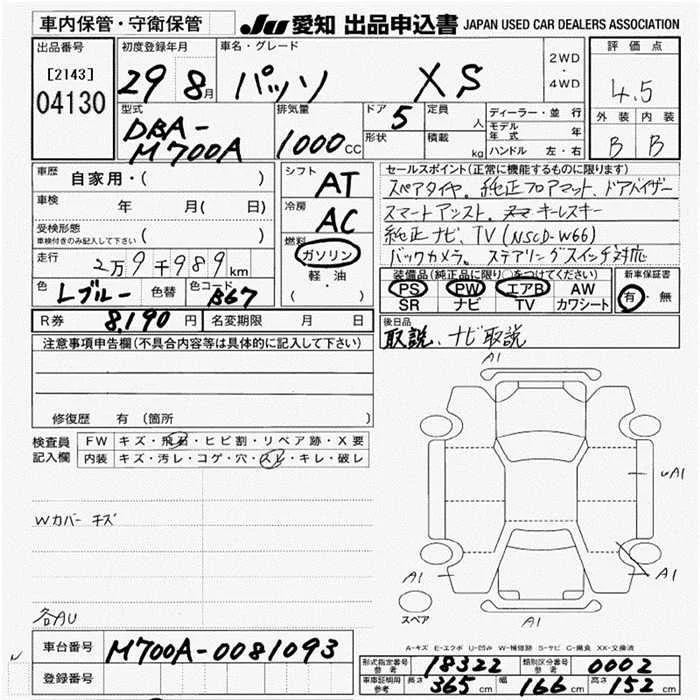 車内保管・守衛保管
JU 愛知 出品申込書 JAPAN USED CAR DEALERS ASSOCIATION
出品番号
[2143]
04130
初度登録年月
29 8月
車名・グレード
パッソ XS
2WD
・
4WD
評価点
4.5
外装 内装
B B
型式
DBA-
M700A
排気量
1000cc
ドア 5
形状
定員 人
積載 kg
ディーラー・並行
モデル年式 年
ハンドル 左・右
車歴
自家用・( )
車検 年 月( 日)
受検形態
車検付きのみ記入して下さい( )
走行
2万9千989km
色 Lブルー 色替 色コード B67
シフト AT
冷房 AC
燃料
ガソリン
軽・油
( )
セールスポイント(正常に機能するものに限ります)
スペアタイヤ、純正フロアマット、ドアバイザー
スマートアシスト、キーレスキー
純正ナビ、TV(NSCD-W66)
バックカメラ。ステアリングスイッチ対応
装備品(純正品に限り○をつけてください)
PS PW エアB AW
SR ナビ TV カワシート
新車保証書
有・無
R券 8,190円 名変期限 月 日
後日品
取説、ナビ取説
注意事項申告欄(不具合内容等は具体的に記入して下さい)
修復歴 有(箇所 )
検査員
記入欄
FW キズ・飛石・ヒビ割・リペア跡・X要
内装 キズ・汚レ・コゲ・穴・スレ・キレ・破レ
Wカバー キズ
各AU
A1
uA1
A1
A1
A1
スペア
A-キズ E-エクボ U-凹み W-補修跡 S-サビ C-腐食 XX-交換済
車台番号 M700A-0081093
登録番号
形式指定番号 参考 18322 類別区分番号 参考 0002
車庫証明用 参考 長さ 365cm 幅 166cm 高さ 152cm